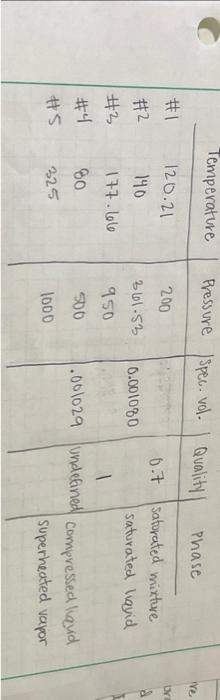 Temperature Pressure Spec. vol. Quality Phase
#1 120.21 200 0.7 saturated mixture
#2 140 361.53 0.001080 saturated liquid
#3 177.66 950 1
#4 80 500 .001029 undefined compressed liquid
#5 325 1000 superheated vapor